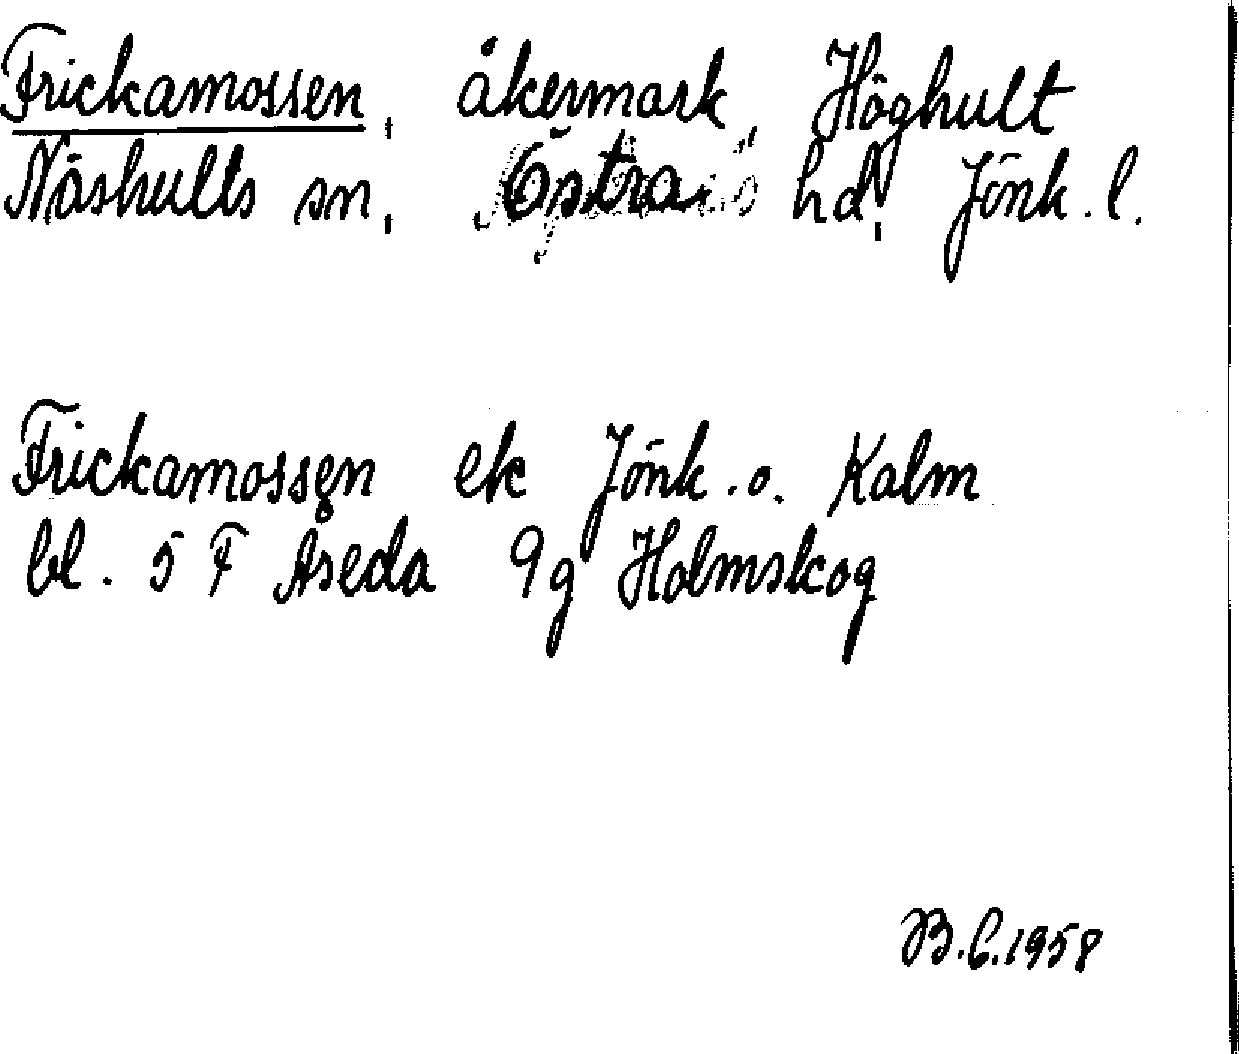 Frickamossen, åkermark, Höghult
Näshults sn, Östra hd, Jönk. l.
Frickamossen ek Jönk. o. Kalm
bl. 5 F Åseda 9g Holmskog
B.C.1958